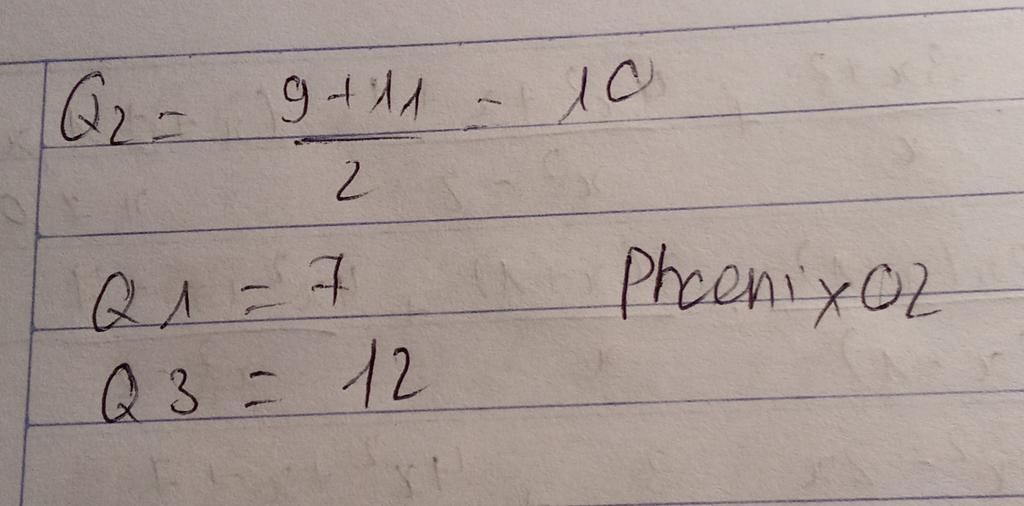 Q2 = 9+11/2 = 10
Q1 = 7 Phoenix02
Q3 = 12